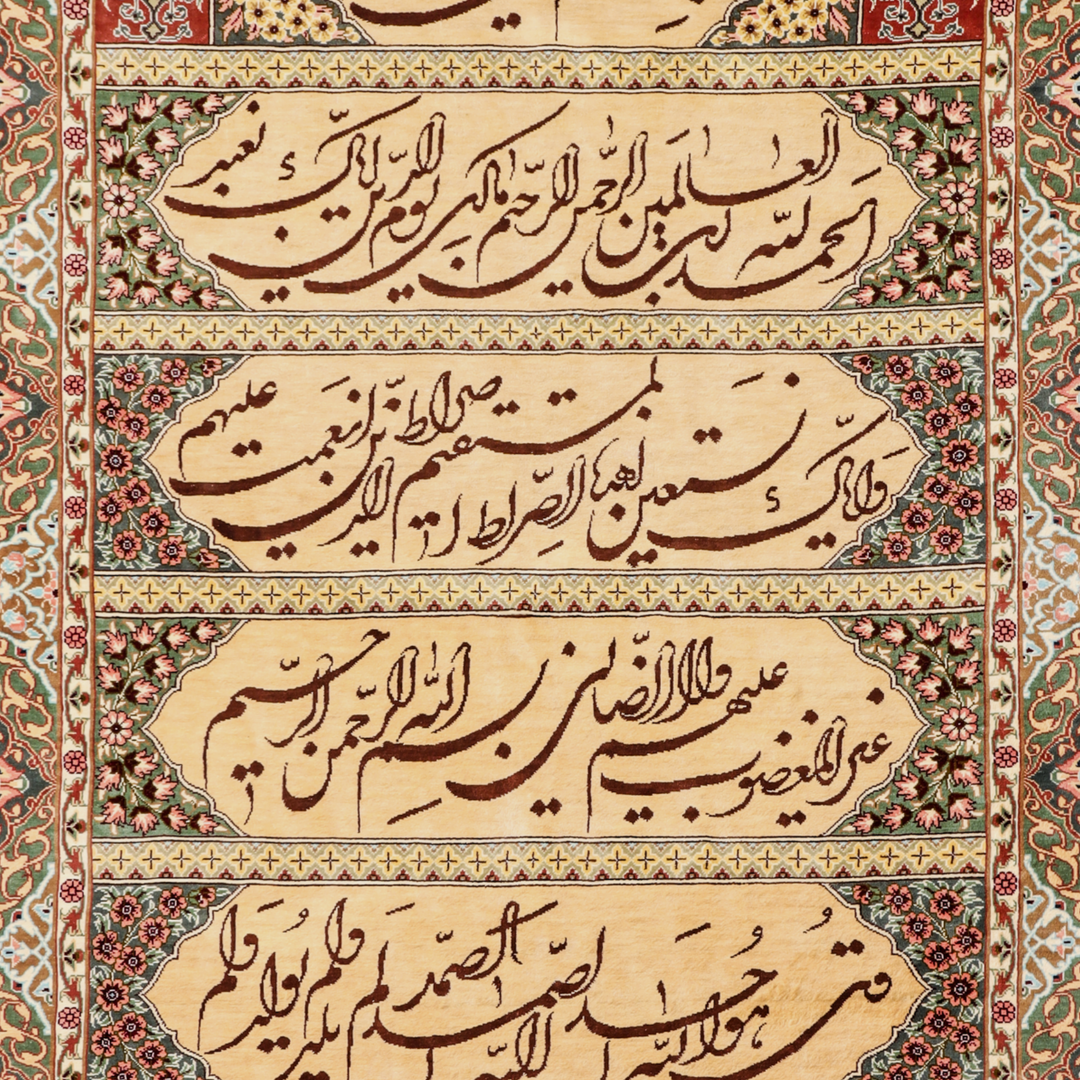 الحمد لله رب العالمين الرحمن الرحيم مالك يوم الدين اياك نعبد
واياك نستعين اهدنا الصراط المستقيم صراط الذين انعمت عليهم
غير المغضوب عليهم ولا الضالين بسم الله الرحمن الرحيم
قل هو الله احد الله الصمد لم يلد ولم يولد ولم